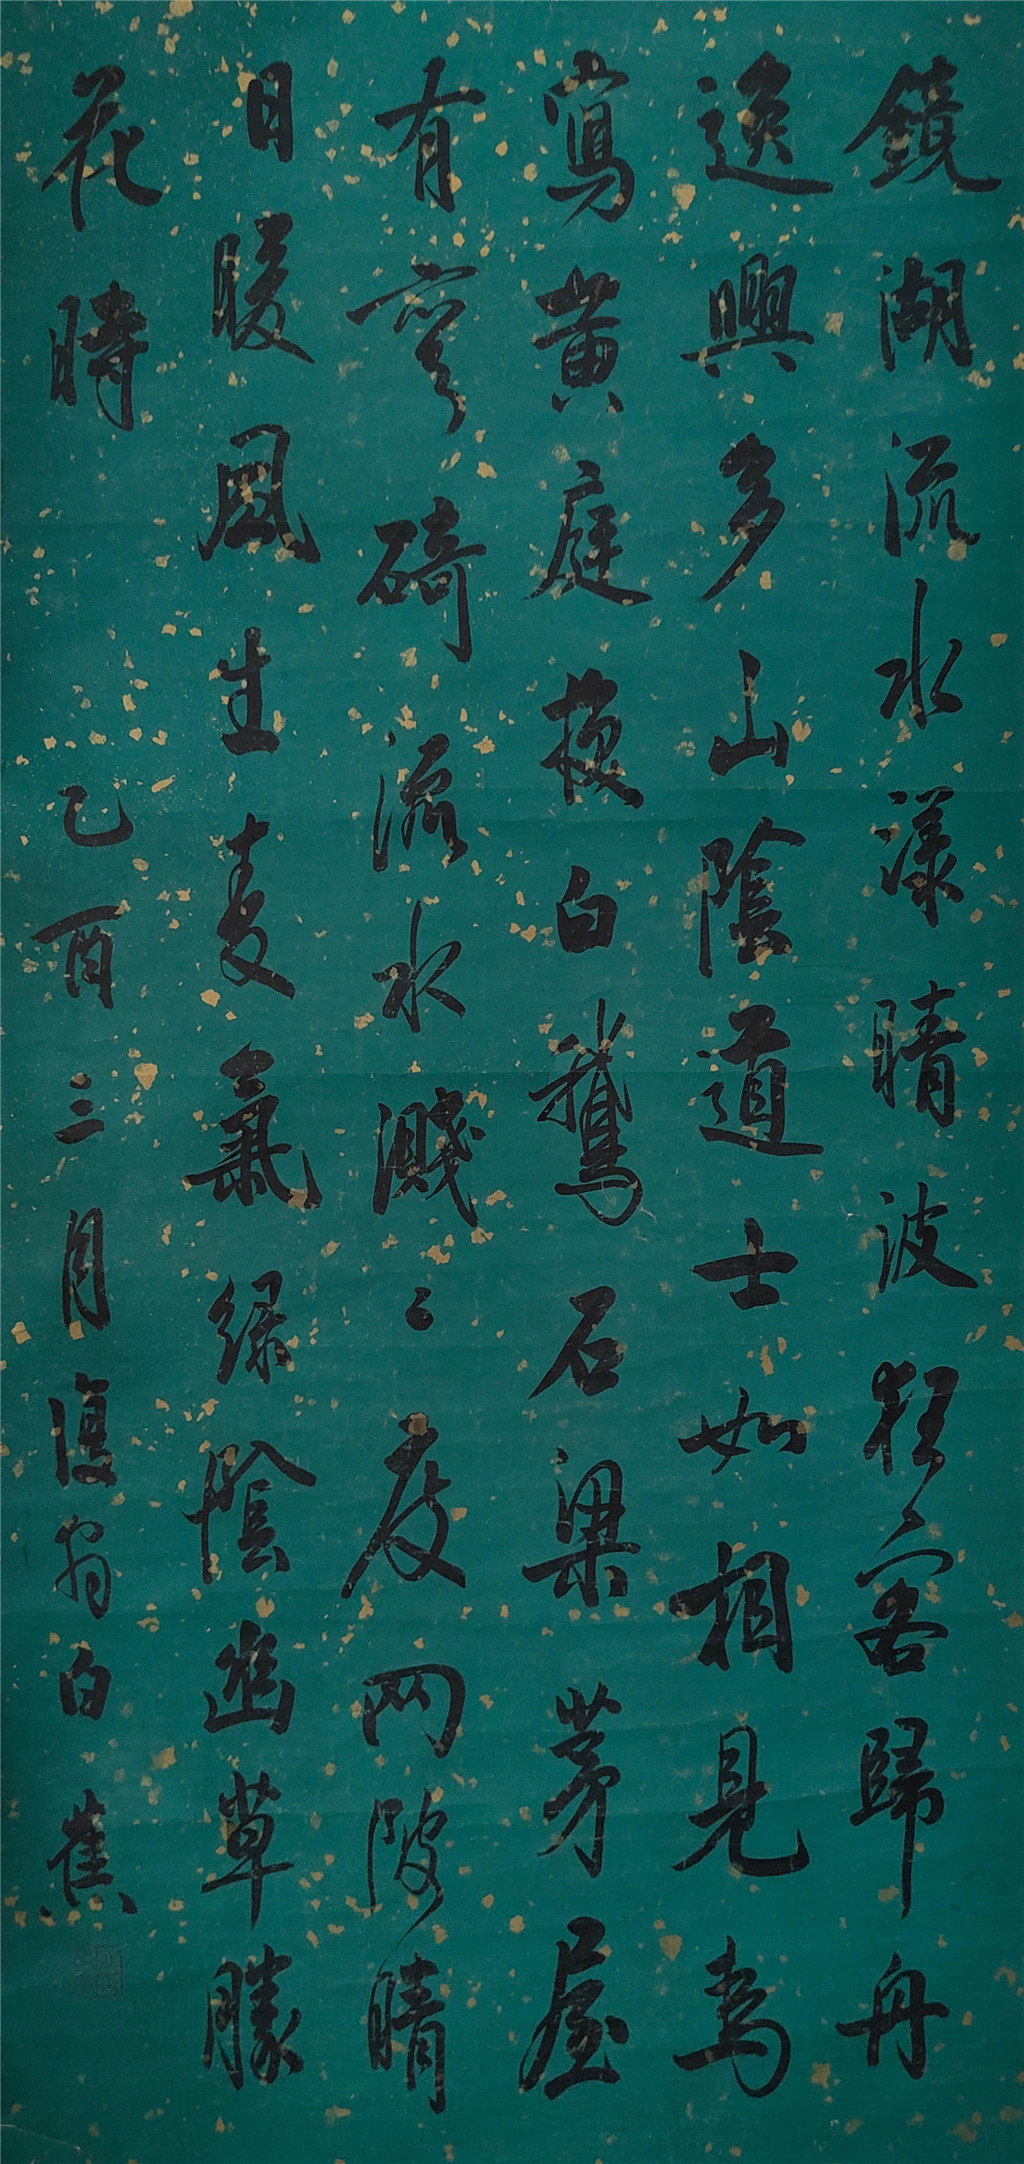 鏡湖流水漾晴波狂客歸舟
逸興多山陰道士如相見為
寫黃庭換白鵝石梁茅屋
有彎碕流水濺〻度兩陂晴
日暖風生麥氣綠陰幽草勝
花時 乙酉三月復翁白蕉